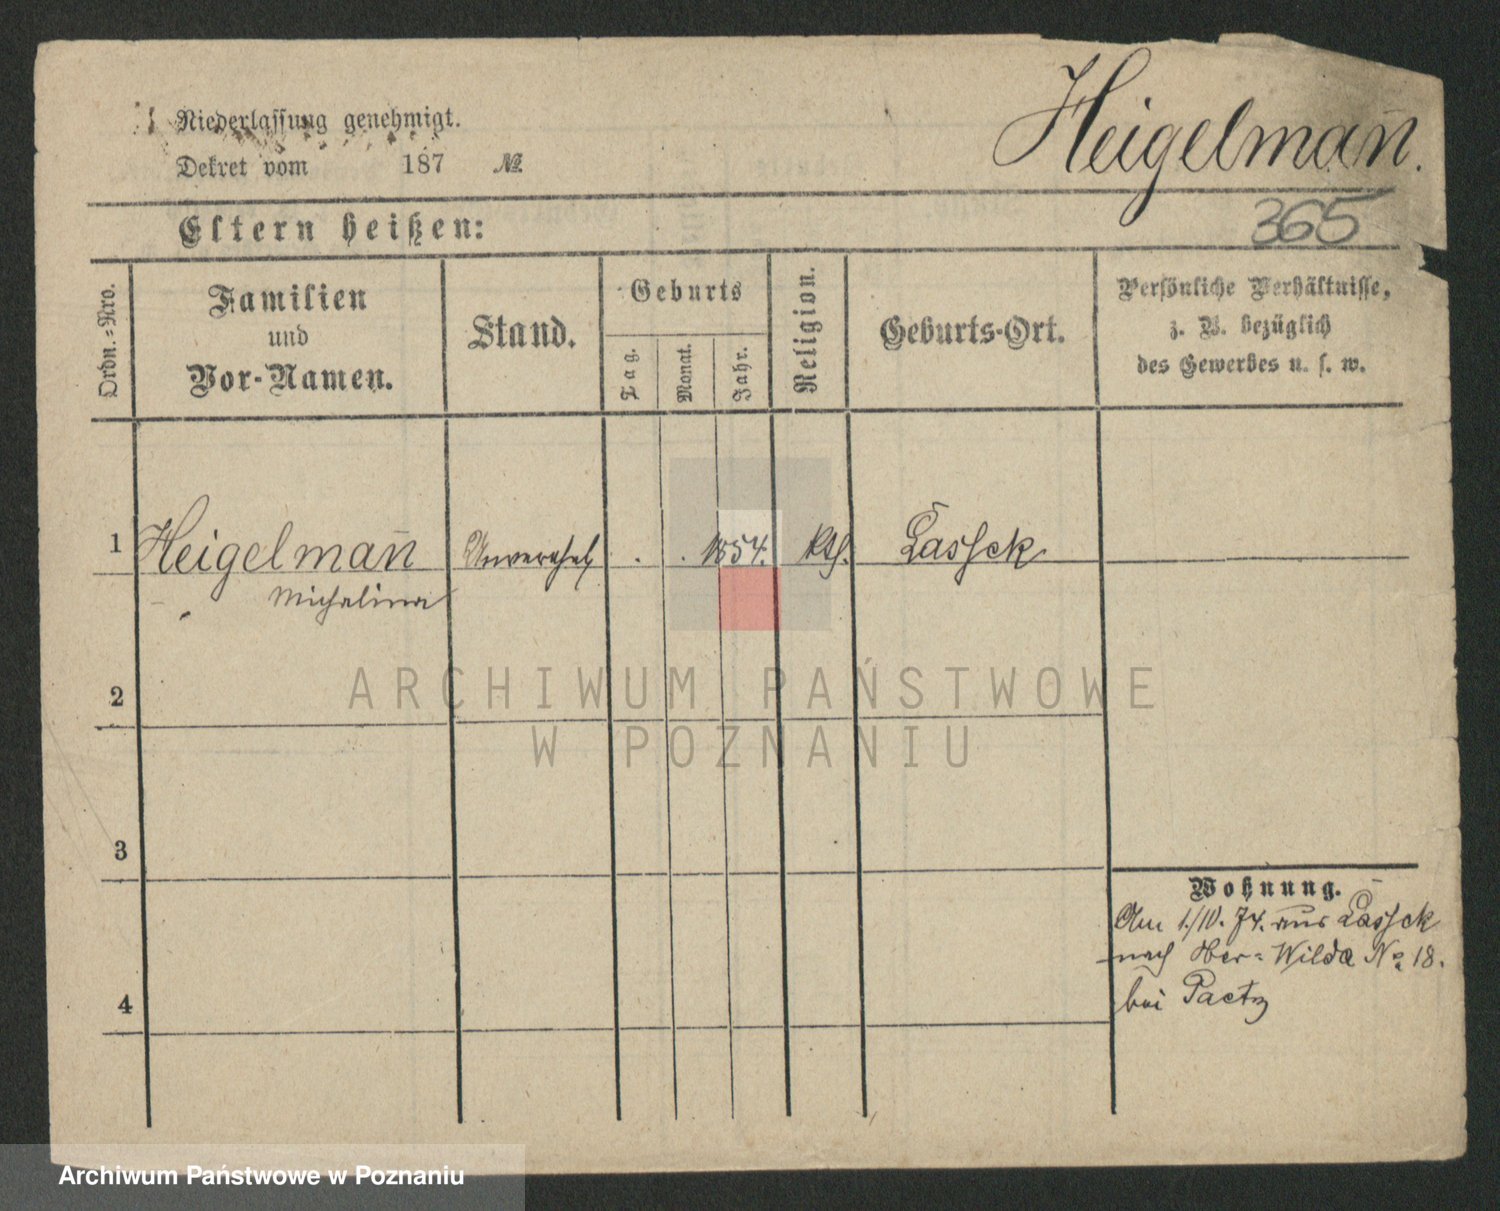 Niederlassung genehmigt.
Dekret vom 187 №
Heigelman̄.
365
Eltern heißen:
Ordn.-Nro.
Familien
und
Vor-Namen.
Stand.
Geburts
Tag.
Monat.
Jahr.
Religion.
Geburts-Ort.
Persönliche Verhältnisse,
z. B. bezüglich
des Gewerbes u. s. w.
1 Heigelman̄ Unverehel . . 1854. kth. Lassek
Michalina
2
3
4
Wohnung.
Am 1./10. 74. aus Lassek
nach Ober-Wilda No 18.
bei Paetz
ARCHIWUM PAŃSTWOWE
W POZNANIU
Archiwum Państwowe w Poznaniu